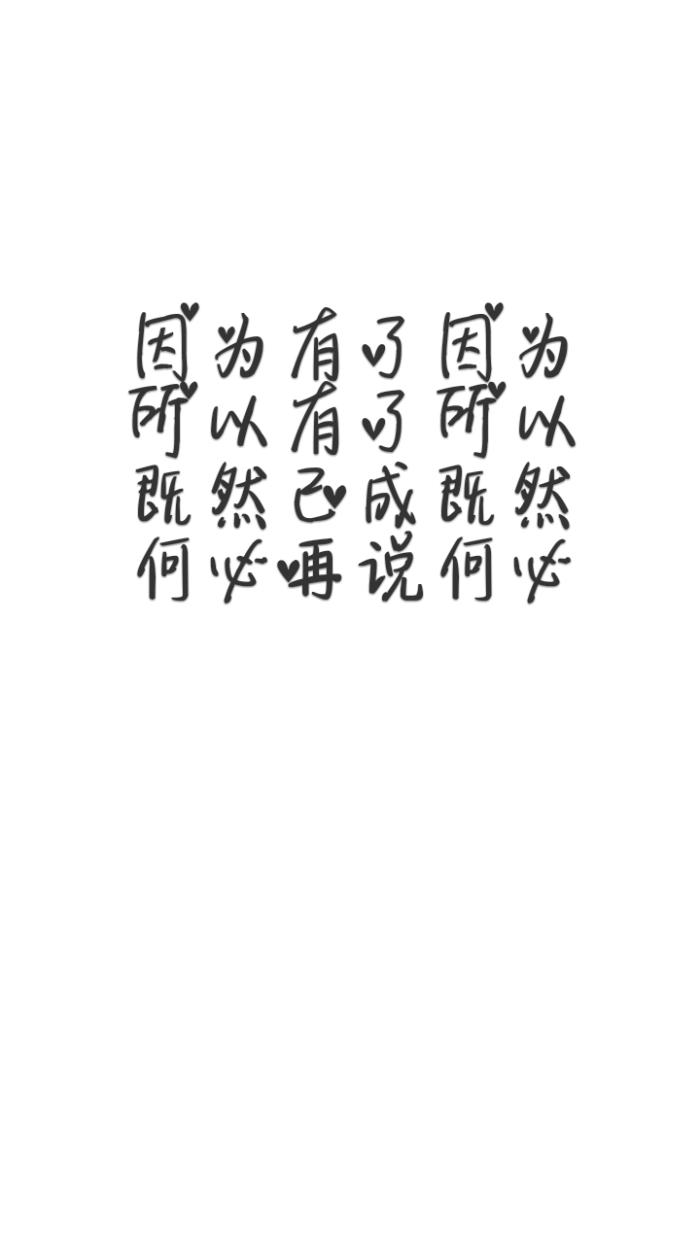 因为有了因为
所以有了所以
既然已成既然
何必再说何必